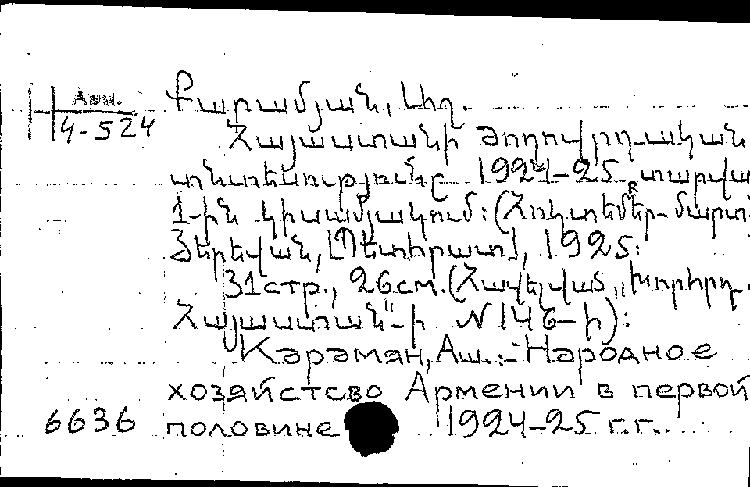 Арм.
4-524
Քարամյան, Աշ.
Հայաստանի ժողովրդական
տնտեսությունը 1924-25 տարվա
1-ին կիսամյակում: (Հոկտեմբեր- մարտ)
Յերեվան, [Պետհրատ], 1925:
31стр., 26см. (Հավելված „Խորհրդ.
Հայաստան"-ի N 146-ի):
Карамян, Аш.:- Народное
хозяйство Армении в первой
6636 половине 1924-25 г.г.